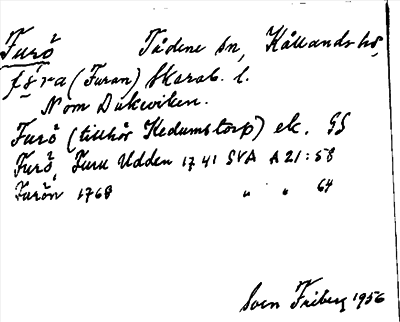 Furö Tådene sn, Kållands hd,
fŭra (Furan) Skarab. l.
Nom Dukviken.
Furö (tillhör Hedumstorp) ek. GS
Furö, Furu Udden 1741 SVA A 21:58
Furön 1768 " " 64
Sven Friberg 1956